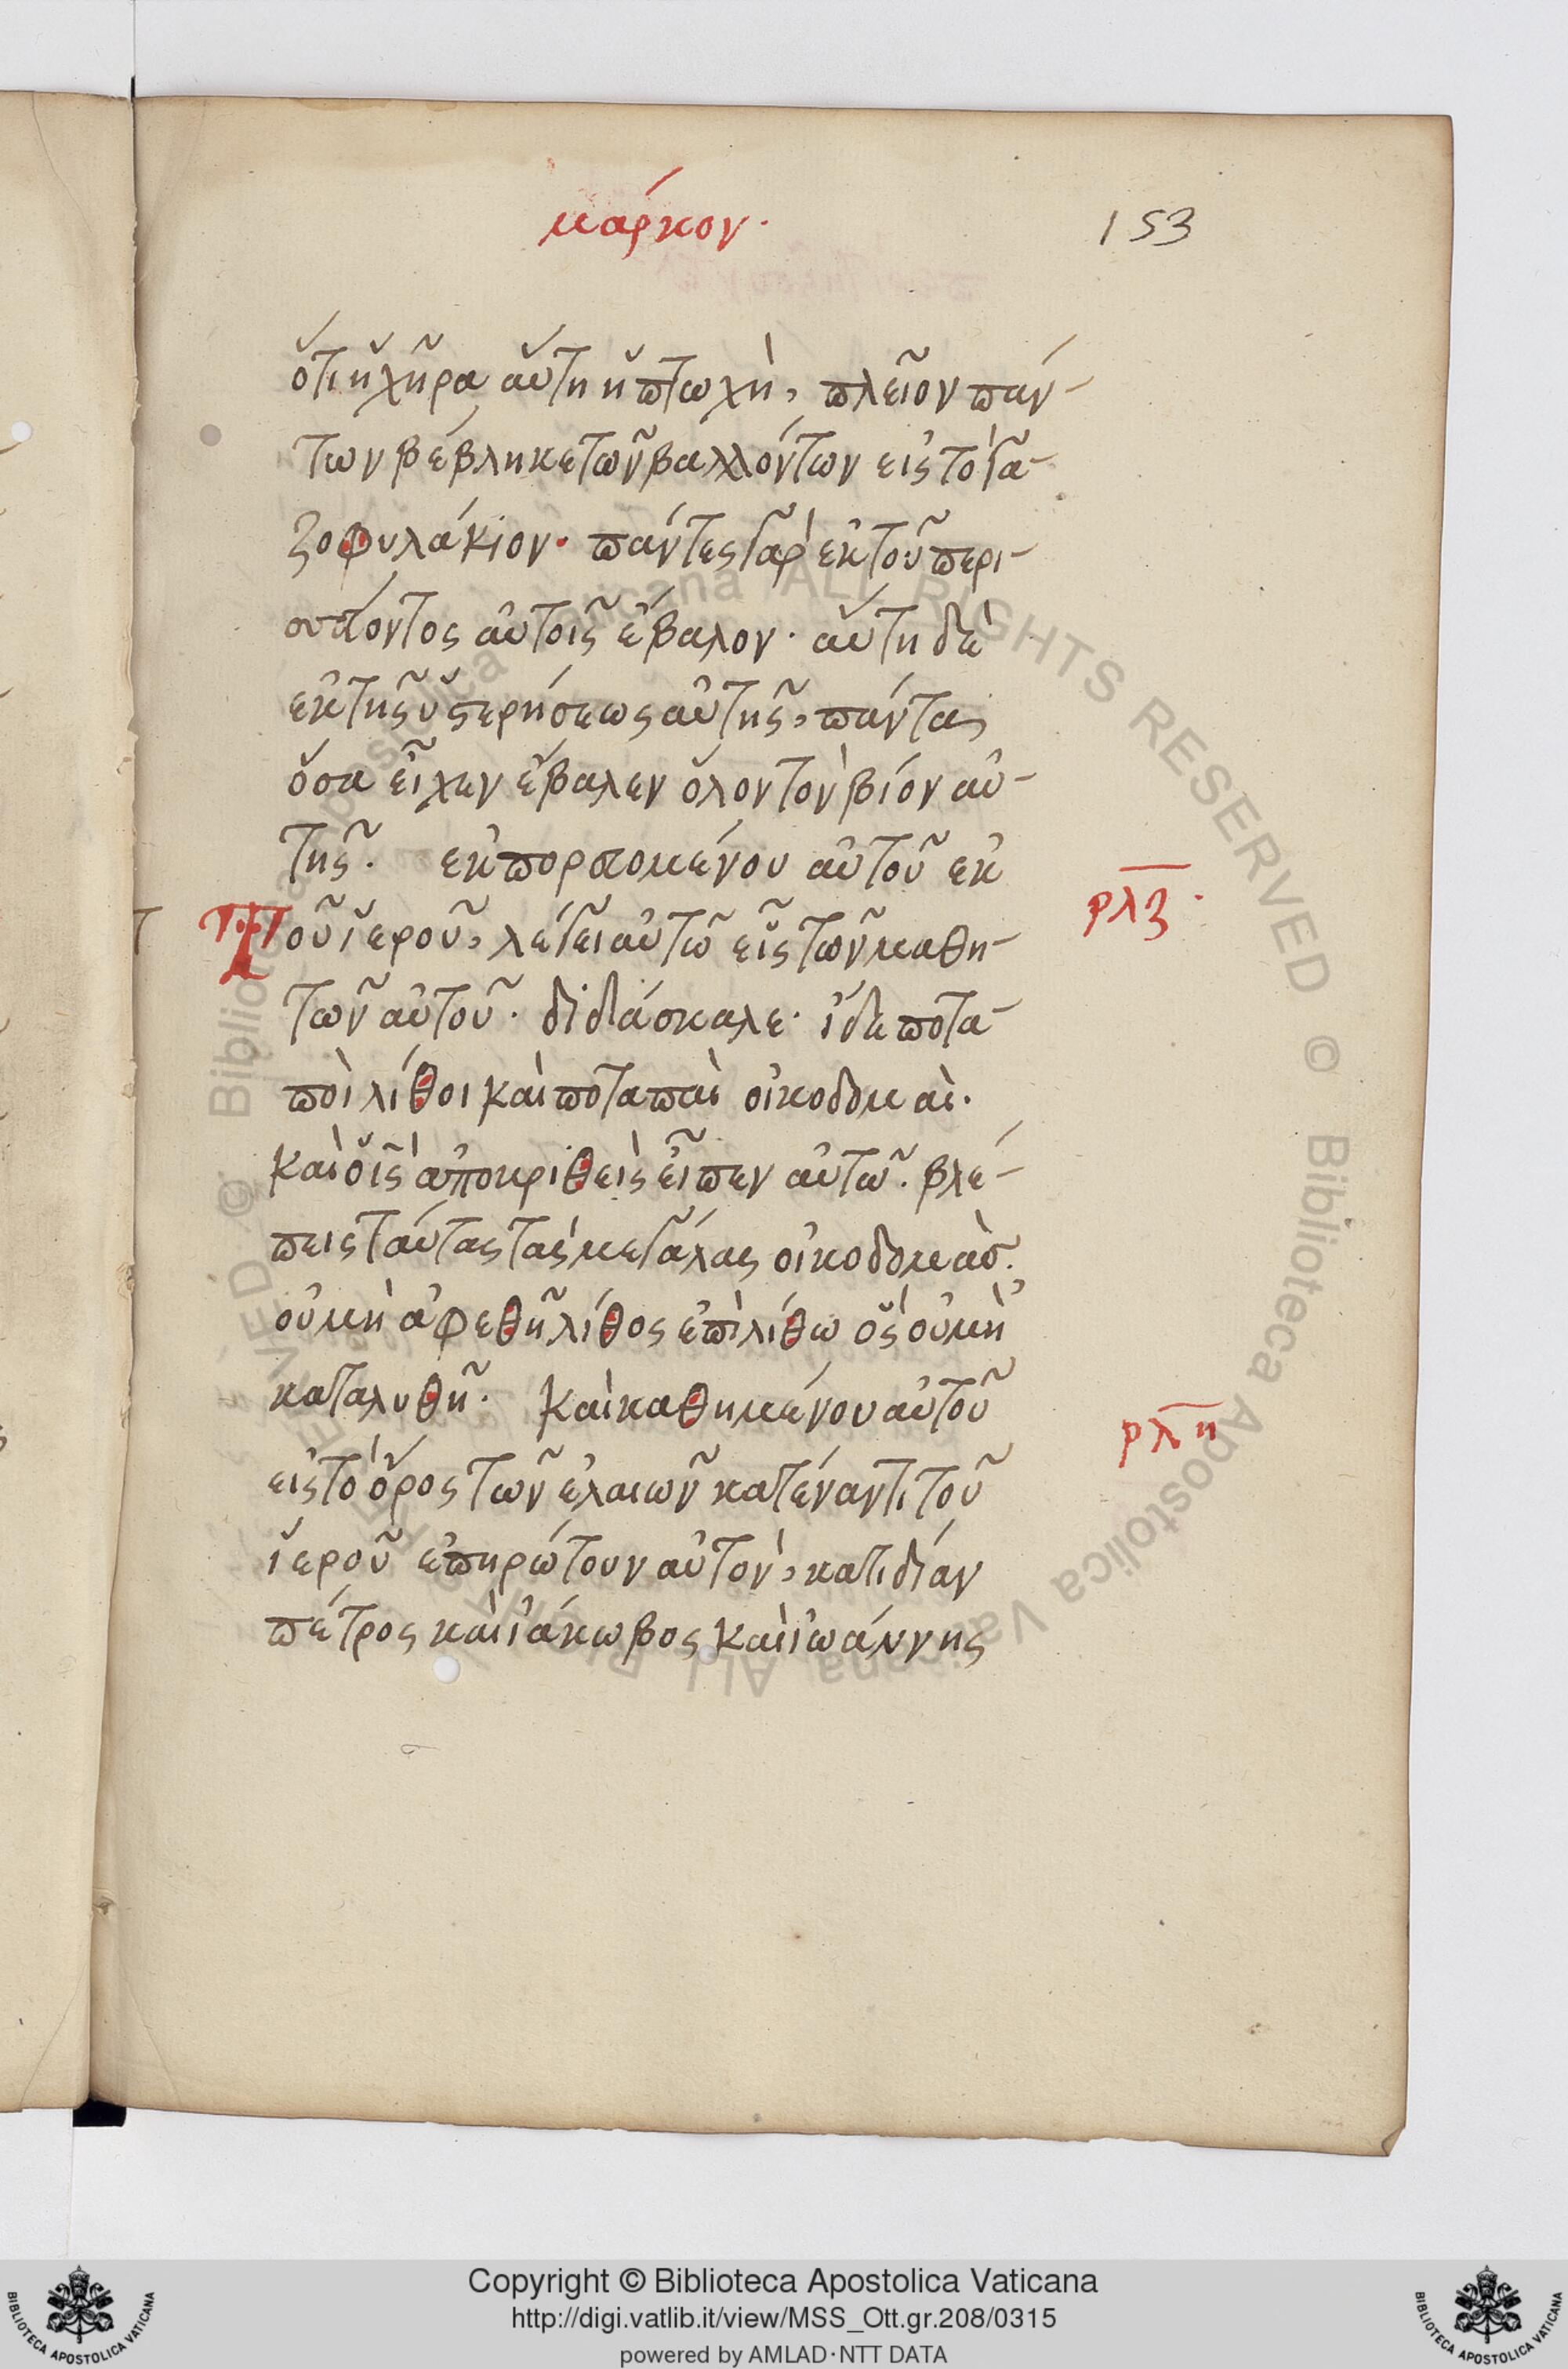 μάρκον·
153
ὅτι ἡ χῆρα αὕτη ἡ πτωχὴ, πλεῖον πάν-
των βέβληκε τῶν βαλλόντων εἰς τὸ γα-
ζοφυλάκιον· πάντες γὰρ ἐκ τοῦ περι-
σσεύοντος αὐτοῖς ἔβαλον· αὕτη δὲ
ἐκ τῆς ὑστερήσεως αὐτῆς, πάντα
ὅσα εἶχεν ἔβαλεν ὅλον τὸν βίον αὐ-
τῆς· ἐκπορευομένου αὐτοῦ ἐκ
Τοῦ ἱεροῦ, λέγει αὐτῶ εἷς τῶν μαθη-
τῶν αὐτοῦ· διδάσκαλε· ἴδε ποτα-
ποὶ λίθοι καὶ ποταπαὶ οἰκοδομαὶ·
καὶ ὁ ις ἀποκριθεὶς εἶπεν αὐτῶ· βλέ-
πεις ταύτας τὰς μεγάλας οἰκοδομὰς·
οὐ μὴ ἀφεθῆ λίθος ἐπὶ λίθω ὃς οὐ μὴ
καταλυθῆ· καὶ καθημένου αὐτοῦ
εἰς τὸ ὄρος τῶν ἐλαιῶν κατέναντι τοῦ
ἱεροῦ ἐπηρώτουν αὐτὸν, κατιδίαν
πέτρος καὶ ἰάκωβος καὶ ἰωάννης
ρλζ·
ρλη
Copyright © Biblioteca Apostolica Vaticana
http://digi.vatlib.it/view/MSS_Ott.gr.208/0315
powered by AMLAD·NTT DATA
BIBLIOTECA APOSTOLICA VATICANA
BIBLIOTECA APOSTOLICA VATICANA
© Biblioteca Apostolica Vaticana ALL RIGHTS RESERVED © Biblioteca Apostolica Vaticana ALL RIGHTS RESERVED